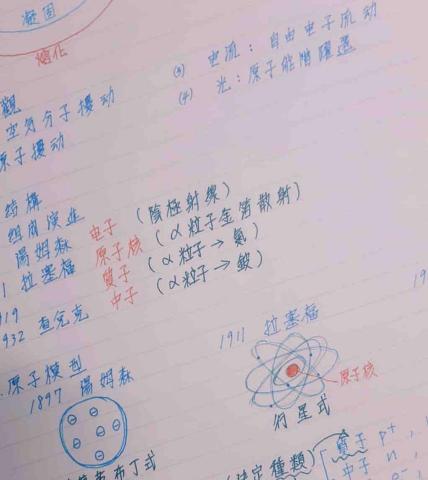 凝固
熔化
觀
空氣分子擾動
原子擾動
(3) 電流：自由电子流动
(4) 光：原子能階躍遷
結構
組成演進
湯姆森 电子 (陰極射線)
1 拉塞福 原子核 (α粒子金箔散射)
919 質子 (α粒子→氮)
932 查兌克 中子 (α粒子→鈹)
原子模型
1897 湯姆森
1911 拉塞福
原子核
行星式
布丁式
決定種類
質子 p⁺
中子 n
e⁻
19